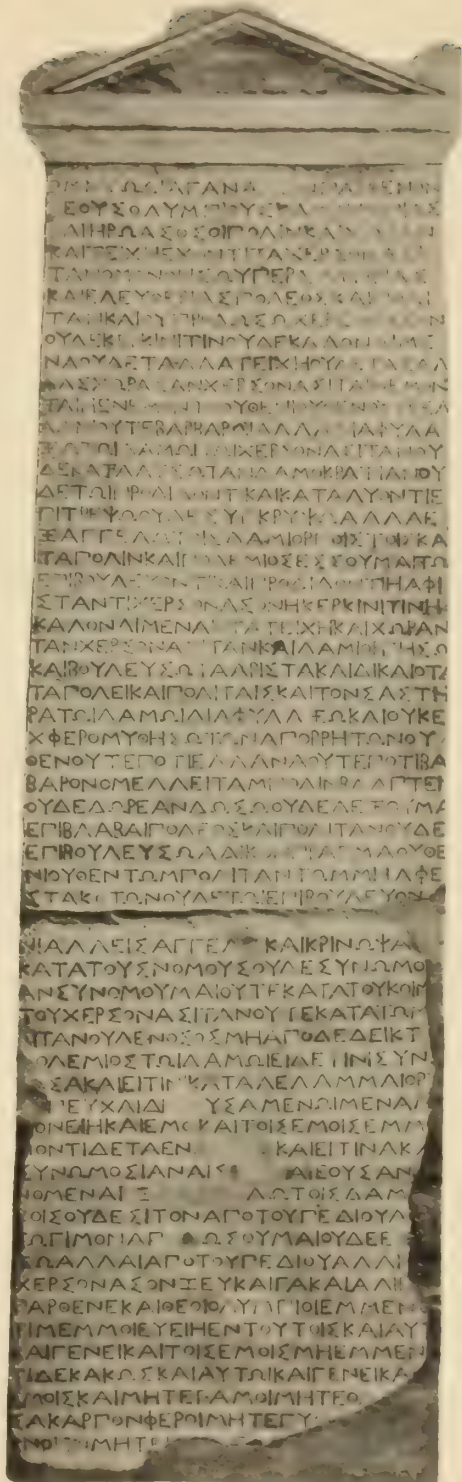 ΟΜΝΥΩΔΙΑΓΑΝΑ ΠΑΡΘΕΝΟΝ
ΕΟΥΣΟΛΥΜΠΙΟΥΣΚΑΙ ΑΣ
ΑΙΗΡΩΑΣΟΣΟΙΠΟΛΙΝΚΑΙ
ΚΑΙΤΕΙΧΗΕΧΟΝΤΙΤΑΧΕΡΣΟΝΑΣΙ
ΤΑΝΟΜΟΝΟΗΣΩΥΠΕΡ ΑΣ
ΚΑΙΕΛΕΥΘΕΡΙΑΣΠΟΛΕΟΣΚΑΙΠΟΛΙ
ΤΑΝΚΑΙΟΥΠΡΟΔΩΣΩΧΕΡΣΟΝΑΣΟΝ
ΟΥΔΕΚΕΡΚΙΝΙΤΙΝΟΥΔΕΚΑΛΟΝΛΙΜΕ
ΝΑΟΥΔΕΤΑΛΛΑΤΕΙΧΗΟΥΔΕΤΑΣΑΛ
ΛΑΣΧΩΡΑΣΑΝΧΕΡΣΟΝΑΣΙΤΑΙΝΕΜΟΝ
ΤΑΙΗΕΝΕΜΟΝΤΟΟΥΘΕΝΙΟΥΘΕΝΟΥΤΕΕΛ
ΛΑΝΙΟΥΤΕΒΑΡΒΑΡΩΙΑΛΛΑΔΙΑΦΥΛΑ
ΞΩΤΩΙΔΑΜΩΙΤΩΙΧΕΡΣΟΝΑΣΙΤΑΝΟΥ
ΔΕΚΑΤΑΛΥΣΩΤΑΝΔΑΜΟΚΡΑΤΙΑΝΟΥ
ΔΕΤΩΙΠΡΟΔΙΔΟΝΤΙΚΑΙΚΑΤΑΛΥΟΝΤΙΕ
ΠΙΤΡΕΨΩΟΥΔΕΣΥΓΚΡΥΨΩΑΛΛΑΕ
ΞΑΓΓΕΛΩΤΟΙΣΔΑΜΙΟΡΓΟΙΣΤΟΙΣΚΑ
ΤΑΠΟΛΙΝΚΑΙΠΟΛΕΜΙΟΣΕΣΣΟΥΜΑΙΤΩΙ
ΕΠΙΒΟΥΛΕΥΟΝΤΙΚΑΙΠΡΟΔΙΔΟΝΤΙΗΑΦΙ
ΣΤΑΝΤΙΧΕΡΣΟΝΑΣΟΝΗΚΕΡΚΙΝΙΤΙΝΗ
ΚΑΛΟΝΛΙΜΕΝΑΗΤΑΤΕΙΧΗΚΑΙΧΩΡΑΝ
ΤΑΝΧΕΡΣΟΝΑΣΙΤΑΝΚΑΙΔΑΜΙΟΡΓΗΣΩ
ΚΑΙΒΟΥΛΕΥΣΩΤΑΑΡΙΣΤΑΚΑΙΔΙΚΑΙΟΤΑ
ΤΑΠΟΛΕΙΚΑΙΠΟΛΙΤΑΙΣΚΑΙΤΟΝΣΑΣΤΗ
ΡΑΤΩΙΔΑΜΩΙΔΙΑΦΥΛΑΞΩΚΑΙΟΥΚΕ
ΧΦΕΡΟΜΥΘΗΣΩΤΩΝΑΠΟΡΡΗΤΩΝΟΥ
ΘΕΝΟΥΤΕΠΟΤΙΕΛΛΑΝΑΟΥΤΕΠΟΤΙΒΑ
ΒΑΡΟΝΟΜΕΛΛΕΙΤΑΜΠΟΛΙΝΒΛΑΠΤΕΙ
ΟΥΔΕΔΩΡΕΑΝΔΩΣΩΟΥΔΕΔΕΞΟΥΜΑ
ΕΠΙΒΛΑΒΑΙΠΟΛΕΟΣΚΑΙΠΟΛΙΤΑΝΟΥΔΕ
ΕΠΙΒΟΥΛΕΥΣΩΑΔΙΚΟΝΠΡΑΓΜΑΟΥΘΕ
ΝΙΟΥΘΕΝΤΩΜΠΟΛΙΤΑΝΤΩΜΜΗΑΦΕ
ΣΤΑΚΟΤΩΝΟΥΔΕΤΩΙΕΠΙΒΟΥΛΕΥΟΝ
ΝΙΑΛΛΕΙΣΑΓΓΕΛΩΚΑΙΚΡΙΝΩΨΑ
ΚΑΤΑΤΟΥΣΝΟΜΟΥΣΟΥΔΕΣΥΝΩΜΟ
ΑΝΣΥΝΟΜΟΥΜΑΙΟΥΤΕΚΑΤΑΤΟΥΚΟΙΝ
ΤΟΥΧΕΡΣΟΝΑΣΙΤΑΝΟΥΤΕΚΑΤΑΤΩΜ
ΙΤΑΝΟΥΔΕΝΟΣΟΣΜΗΑΠΟΔΕΔΕΙΚΤ
ΟΛΕΜΙΟΣΤΩΙΔΑΜΩΙΕΙΔΕΤΙΝΙΣΥΝ
ΟΣΑΚΑΙΕΙΤΙΝΙΚΑΤΑΛΕΛΑΜΜΑΙΟΡ
ΕΥΧΑΙΔΙ ΥΣΑΜΕΝΩΙΜΕΝΑΜ
ΟΝΕΙΗΚΑΙΕΜΟΙΚΑΙΤΟΙΣΕΜΟΙΣΕΜΜ
ΟΝΤΙΔΕΤΑΕΝ ΚΑΙΕΙΤΙΝΑΚΑ
ΣΥΝΩΜΟΣΙΑΝΑΙΣΘ ΑΙΕΟΥΣΑΝ
ΝΟΜΕΝΑΝΕ ΛΩΤΟΙΣΔΑΜ
ΟΙΣΟΥΔΕΣΙΤΟΝΑΠΟΤΟΥΠΕΔΙΟΥΑ
ΩΓΙΜΟΝΑΠΟΔΩΣΟΥΜΑΙΟΥΔΕΕ
ΞΩΑΛΛΑΙΑΠΟΤΟΥΠΕΔΙΟΥΑΛΛ
ΧΕΡΣΟΝΑΣΟΝΖΕΥΚΑΙΓΑΚΑΙΑΛΙΕ
ΠΑΡΘΕΝΕΚΑΙΘΕΟΙΟΛΥΜΠΙΟΙΕΜΜΕΝ
ΤΙΜΕΜΜΟΙΕΥΕΙΗΕΝΤΟΥΤΟΙΣΚΑΙΑΥΤ
ΚΑΙΓΕΝΕΙΚΑΙΤΟΙΣΕΜΟΙΣΜΗΕΜΜΕΝ
ΤΙΔΕΚΑΚΩΣΚΑΙΑΥΤΩΙΚΑΙΓΕΝΕΙΚΑ
ΜΟΙΣΚΑΙΜΗΤΕΓΑΜΟΙΜΗΤΕΘ
ΣΑΚΑΡΠΟΝΦΕΡΟΙΜΗΤΕΓΥ
ΝΟΙ ΜΗΤ